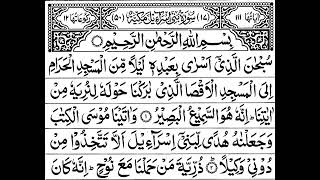 اٰیاتھا ۱۱۱ (۱۷) سُوْرَةُ بَنِیْٓ اِسْرَآءِیْلَ مَكِّیَّةٌ (۵۰) رکوعاتھا ۱۲
بِسْمِ اللّٰهِ الرَّحْمٰنِ الرَّحِیْمِ
سُبْحٰنَ الَّذِیْۤ اَسْرٰی بِعَبْدِهٖ لَیْلًا مِّنَ الْمَسْجِدِ الْحَرَامِ
اِلَی الْمَسْجِدِ الْاَقْصَا الَّذِیْ بٰرَكْنَا حَوْلَهٗ لِنُرِیَهٗ مِنْ
اٰیٰتِنَا ؕ اِنَّهٗ هُوَ السَّمِیْعُ الْبَصِیْرُ ۝۱ وَاٰتَیْنَا مُوْسَی الْكِتٰبَ
وَجَعَلْنٰهُ هُدًی لِّبَنِیْۤ اِسْرَآءِیْلَ اَلَّا تَتَّخِذُوْا مِنْ
دُوْنِیْ وَكِیْلًا ۝۲ ذُرِّیَّةَ مَنْ حَمَلْنَا مَعَ نُوْحٍ ؕ اِنَّهٗ كَانَ